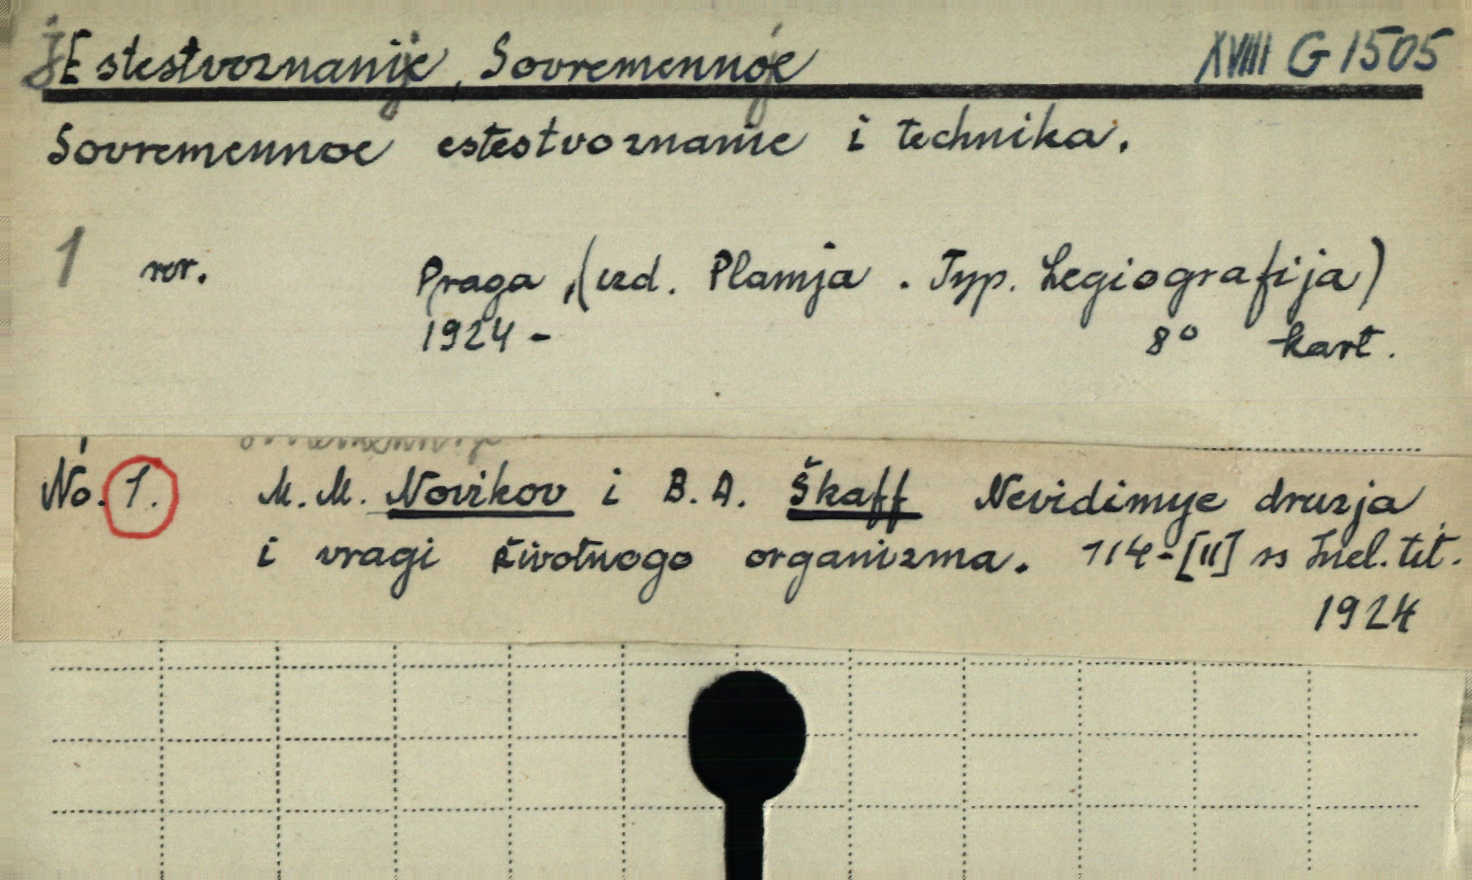 jEstestvoznanije, Sovremennoje XVIII G 1505
Sovremennoe estestvoznanie i technika.
1 vor. Praga, (izd. Plamja. Typ. Legiografija)
1924 - 8° kart.
No. 1. M. M. Novikov i B. A. Škaff Nevidimye druzja
i vragi životnogo organizma. 114-[II] ss tit.
1924